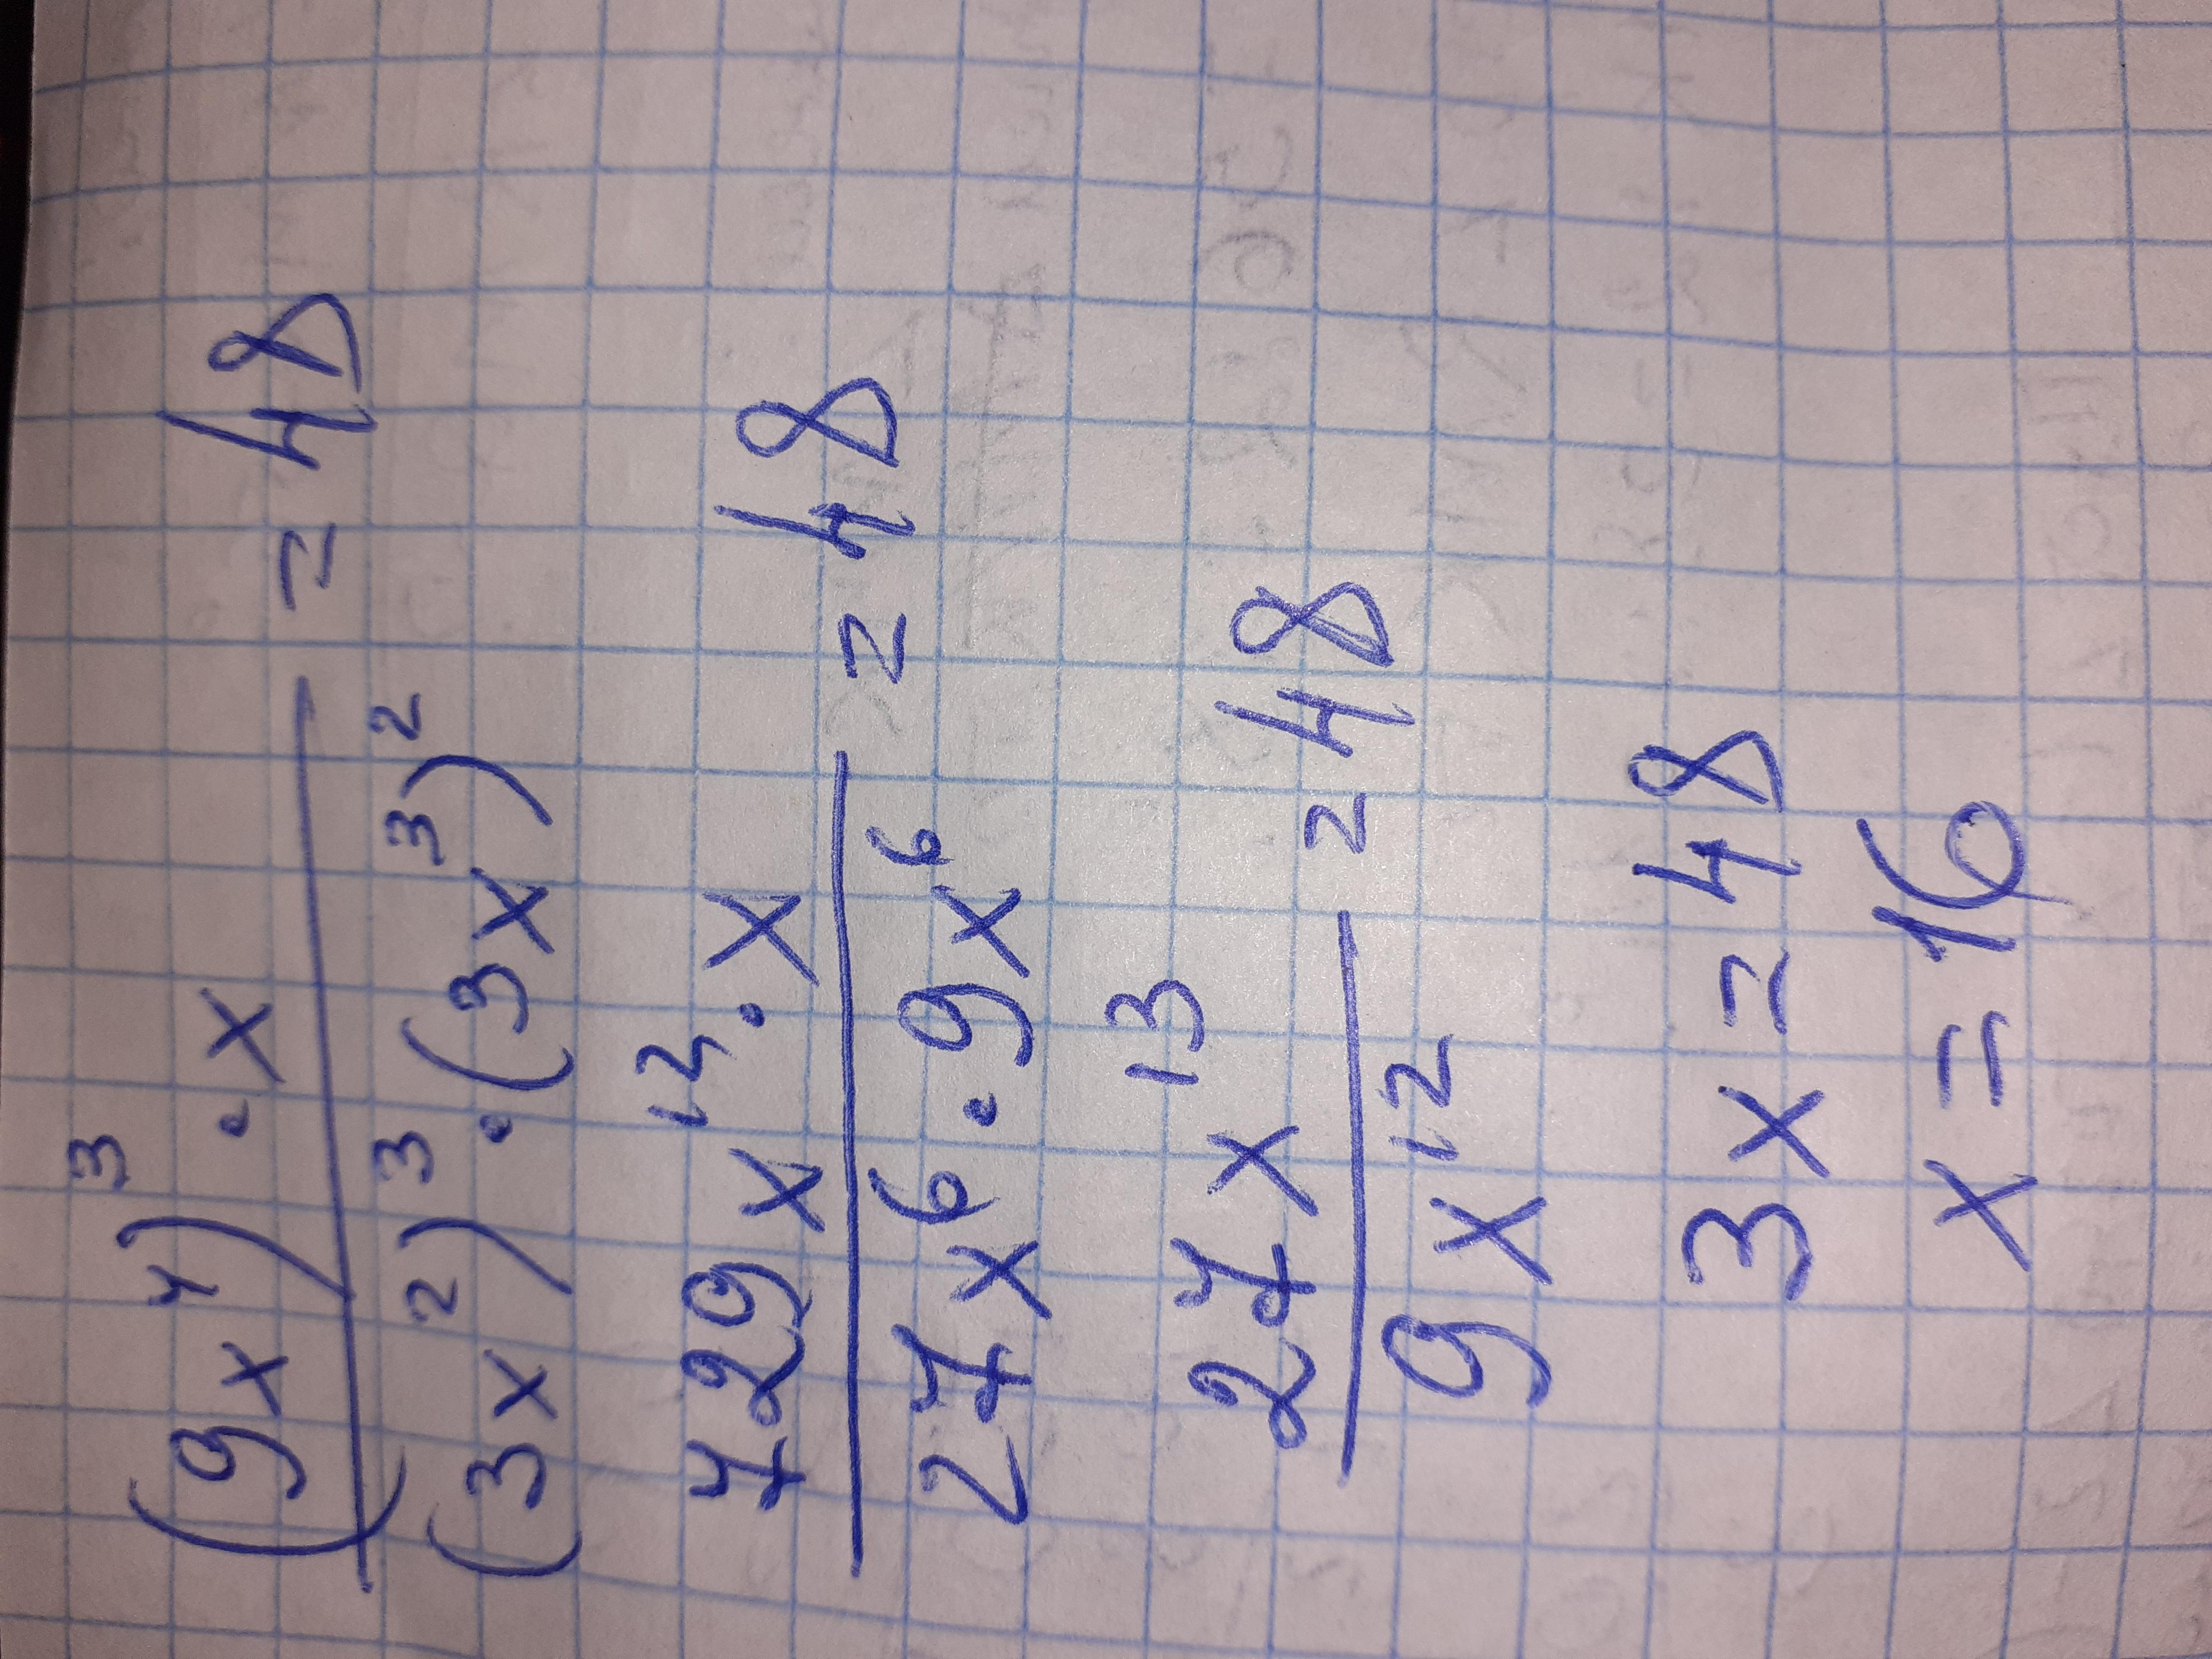 (9x⁴)³ · x / (3x²)³ · (3x³)² = 48
729x¹² · x / 27x⁶ · 9x⁶ = 48
27x¹³ / 9x¹² = 48
3x = 48
x = 16